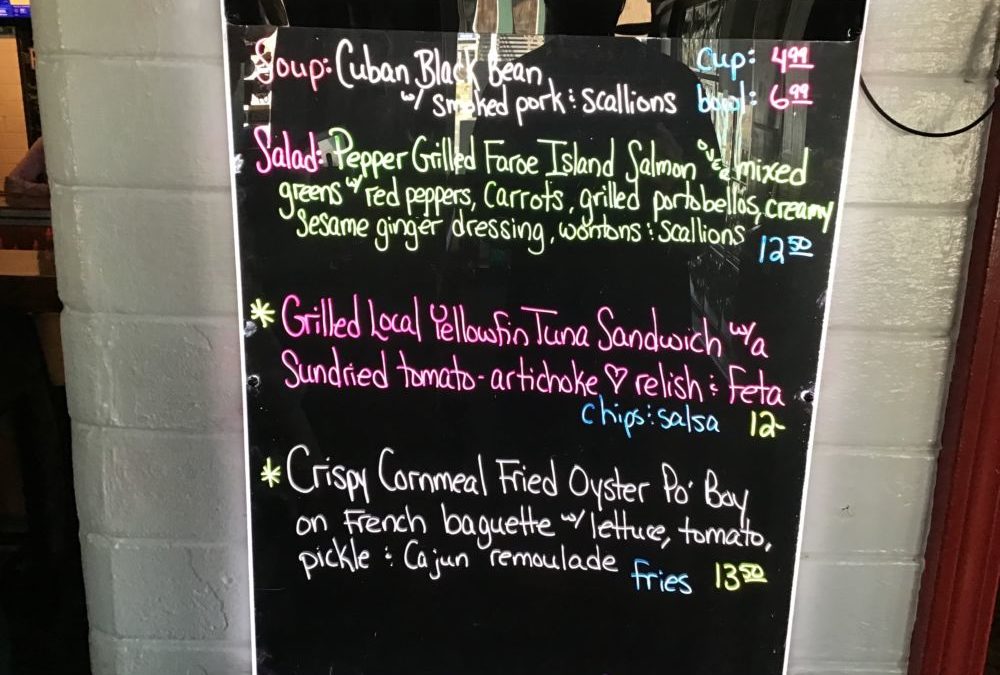 Soup: Cuban Black Bean Cup: 4.99
w/ smoked pork & scallions bowl: 6.99
Salad: Pepper Grilled Faroe Island Salmon over mixed
greens w/ red peppers, Carrots, grilled portobellos, creamy
sesame ginger dressing, wontons & scallions
12.50
* Grilled Local Yellowfin Tuna Sandwich w/a
Sundried tomato-artichoke ♡ relish & Feta
chips & salsa 12-
* Crispy Cornmeal Fried Oyster Po' Boy
on French baguette w/ lettuce, tomato,
pickle & Cajun remoulade
fries 13.50